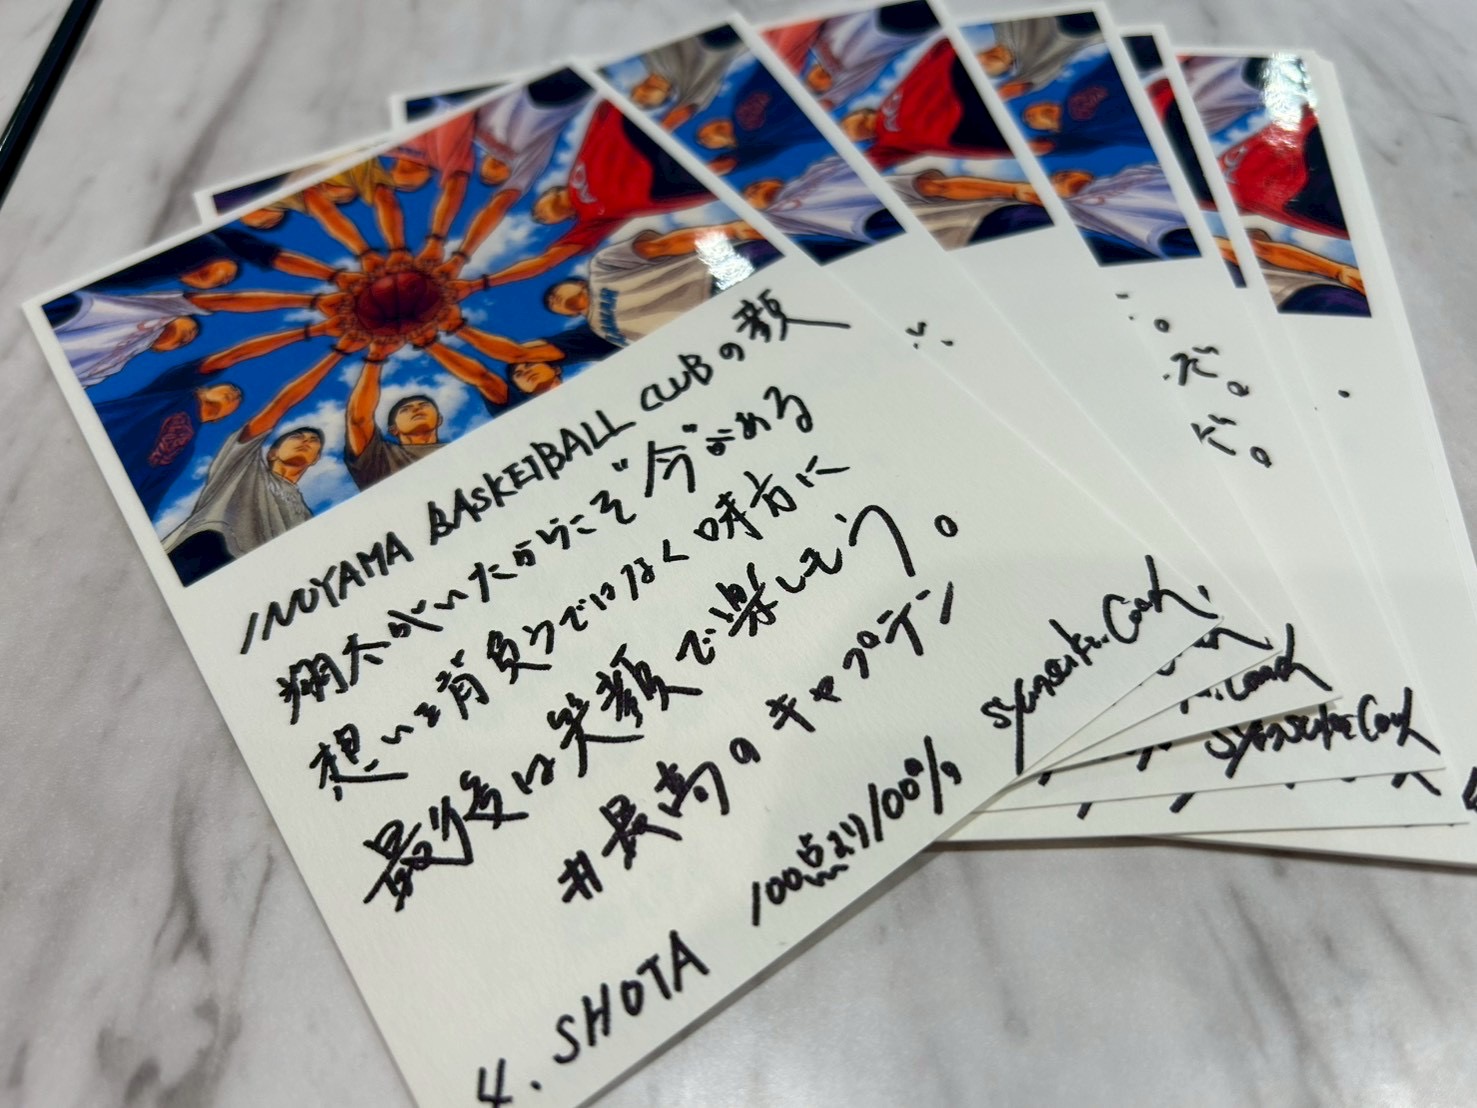 INUYAMA BASKETBALL CLUBの顔
翔太がいたからこそ"今"がある
想いを背負うではなく味方に
最後は笑顔で楽しもう。
#最高のキャプテン
100点より100%
4. SHOTA